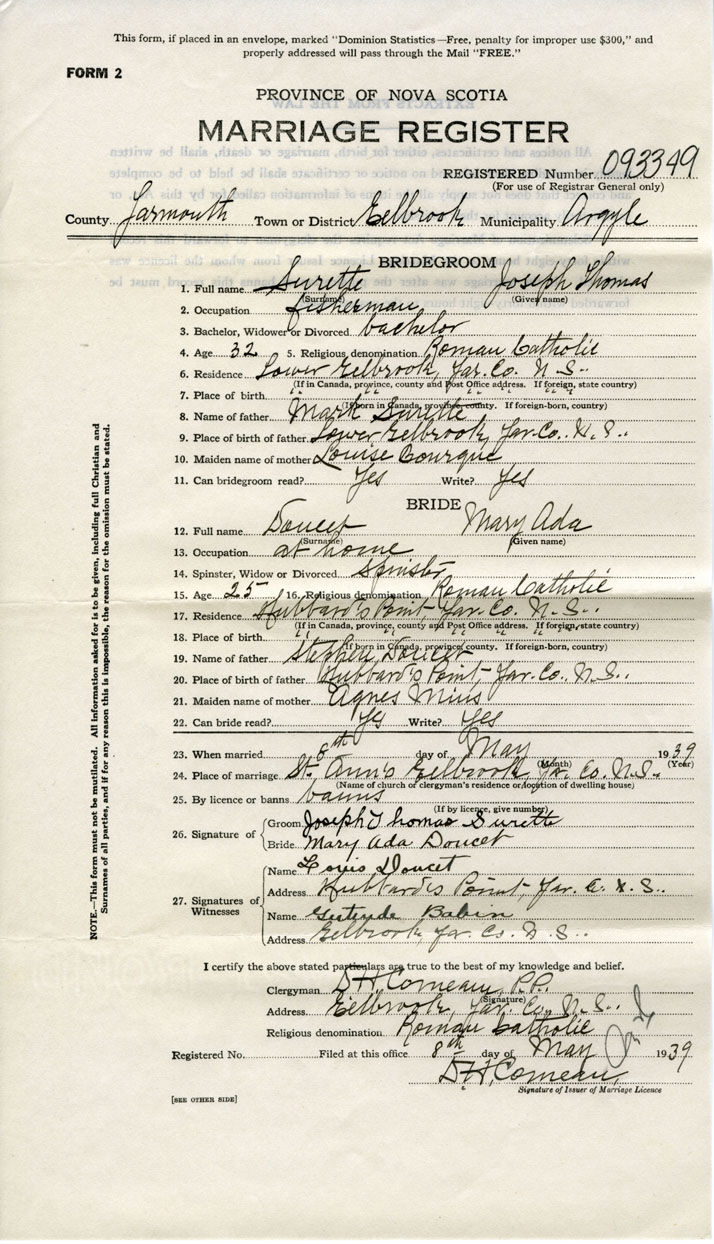 This form, if placed in an envelope, marked "Dominion Statistics—Free, penalty for improper use $300," and
properly addressed will pass through the Mail "FREE."
FORM 2
PROVINCE OF NOVA SCOTIA
MARRIAGE REGISTER
REGISTERED Number 093349
(For use of Registrar General only)
County Yarmouth Town or District Eelbrook Municipality Argyle
BRIDEGROOM
1. Full name Surette Joseph Thomas
(Surname) (Given name)
2. Occupation fisherman
3. Bachelor, Widower or Divorced bachelor
4. Age 32 5. Religious denomination Roman Catholic
6. Residence Lower Eelbrook, Yar. Co. N.S.
(If in Canada, province, county and Post Office address. If foreign, state country)
7. Place of birth " " " " " "
(If born in Canada, province, county. If foreign-born, country)
8. Name of father Mark Surette
9. Place of birth of father Lower Eelbrook, Yar. Co. N.S.
10. Maiden name of mother Louise Bourque
11. Can bridegroom read? Yes Write? Yes
BRIDE
12. Full name Doucet Mary Ada
(Surname) (Given name)
13. Occupation at home
14. Spinster, Widow or Divorced Spinster
15. Age 25 16. Religious denomination Roman Catholic
17. Residence Hubbard's Point, Yar. Co. N.S.
(If in Canada, province, county and Post Office address. If foreign, state country)
18. Place of birth " " " " " "
(If born in Canada, province, county. If foreign-born, country)
19. Name of father Stephen Doucet
20. Place of birth of father Hubbard's Point, Yar. Co. N.S.
21. Maiden name of mother Agnes Mius
22. Can bride read? Yes Write? Yes
23. When married day of May 1939
(Month) (Year)
24. Place of marriage St. Ann's Eelbrook, Yar. Co. N.S.
(Name of church or clergyman's residence or location of dwelling house)
25. By licence or banns banns
(If by licence, give number)
26. Signature of
Groom Joseph Thomas Surette
Bride Mary Ada Doucet
27. Signatures of Witnesses
Name Louis Doucet
Address Hubbard's Point Yar. Co. N.S.
Name Gertrude Babin
Address Eelbrook, Yar. Co. N.S.
I certify the above stated particulars are true to the best of my knowledge and belief.
Clergyman D. H. Comeau, P.P.
(Signature)
Address Eelbrook, Yar. Co. N.S.
Religious denomination Roman Catholic
Registered No. Filed at this office 8th day of May 1939
D. H. Comeau,
Signature of Issuer of Marriage Licence
[SEE OTHER SIDE]
NOTE.—This form must not be mutilated. All information asked for is to be given, including full Christian and
Surnames of all parties, and if for any reason this is impossible, the reason for the omission must be stated.